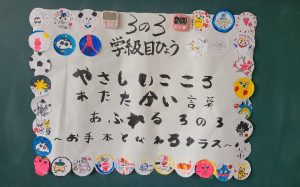 3の3
学級目ひょう
やさしいこころ
あたたかい言葉
あふれる 3の3
～お手本となれるクラス～